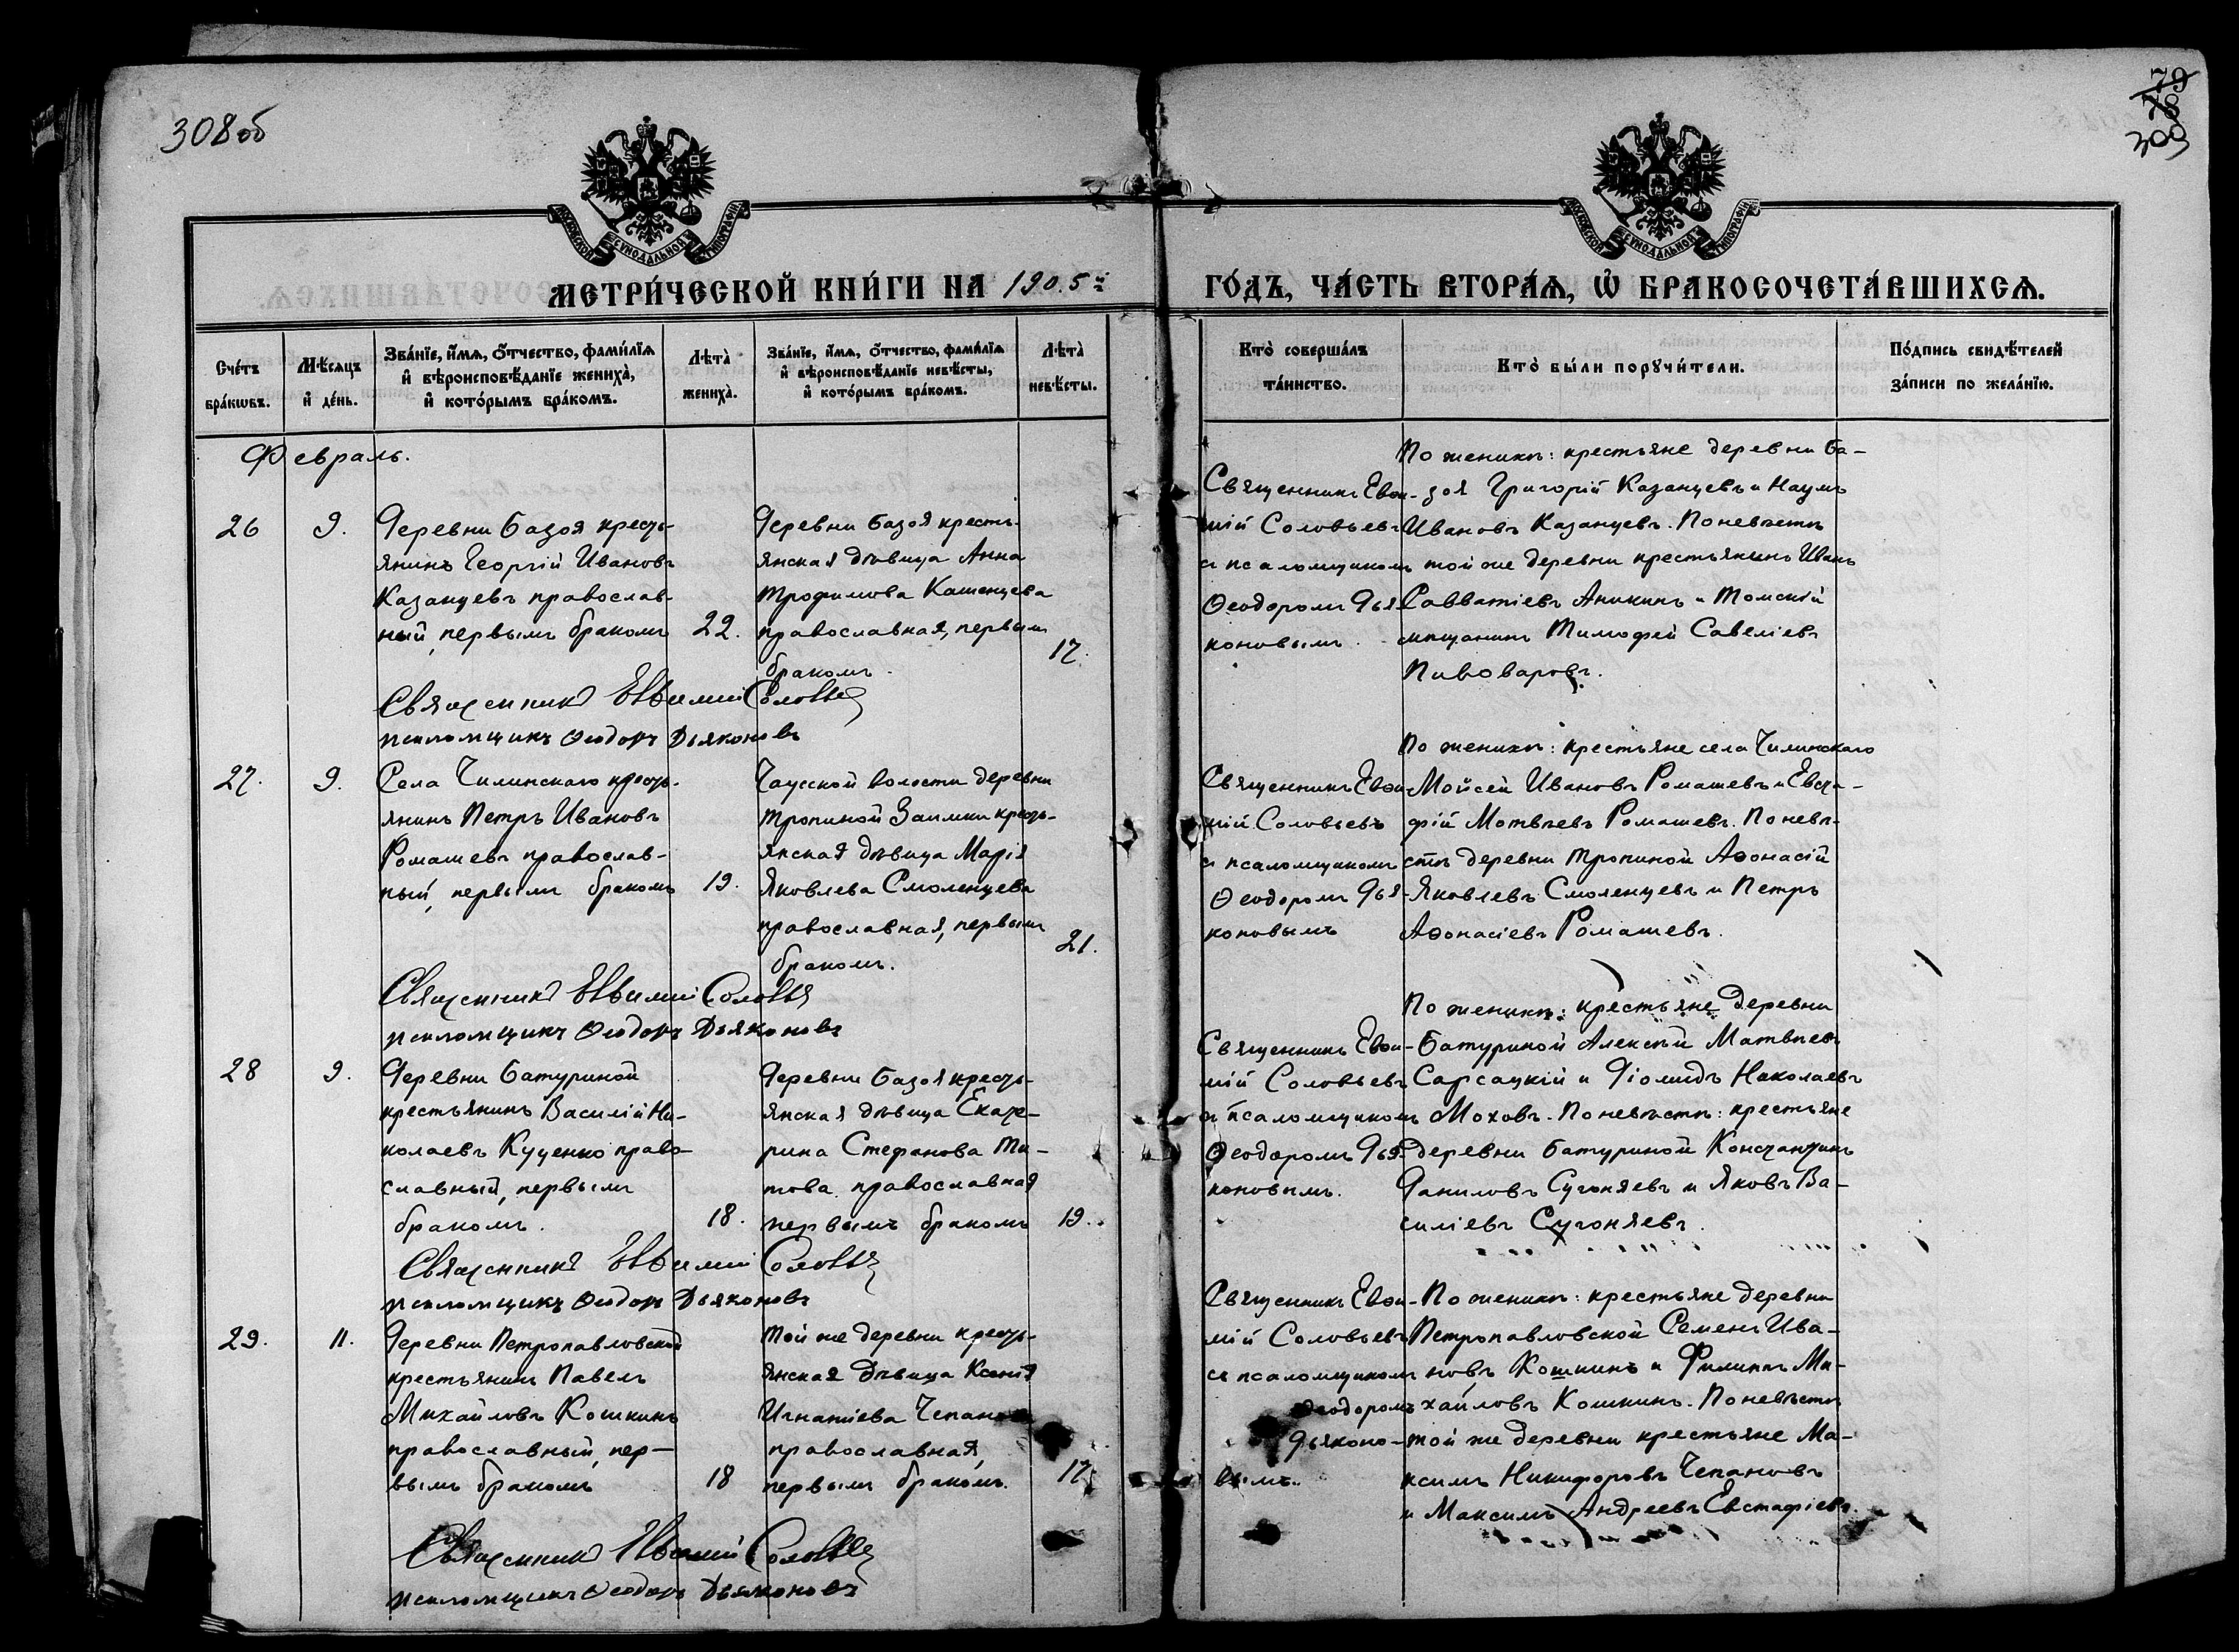 308об
79
78
309
МОСКОВСКОЙ СѴНОДАЛЬНОЙ ТИПОГРАФІИ
МОСКОВСКОЙ СѴНОДАЛЬНОЙ ТИПОГРАФІИ
МЕТРИ́ЧЕСКОЙ КНИ́ГИ НА 1905й
ГО́ДЪ, ЧА́СТЬ ВТОРА́Ѧ, Ѡ҆ БРАКОСОЧЕТА́ВШИХСѦ.
Сче́тъ
бра́кѡвъ.
Мѣ́сяцъ
и҆ де́нь.
Зва́нїе, и҆́мѧ, ѻ҆́тчество, фами́лїѧ
и҆ вѣроисповѣ́данїе жениха̀,
и҆ кото́рымъ бра́комъ.
Лѣ́та̀
жениха̀.
Зва́нїе, и҆́мѧ, ѻ҆́тчество, фами́лїѧ
и҆ вѣроисповѣ́данїе невѣ́сты,
и҆ кото́рымъ бра́комъ.
Лѣ́та̀
невѣ́сты.
Кто̀ соверша́лъ
та́инство.
Кто̀ бы́ли порꙋчи́тели.
По́дпись свидѣ́телей
за́писи по жела́нїю.
Февраль.
26
9.
Деревни Базоя кресть-
янинъ Георгій Ивановъ
Казанцевъ православ-
ный, первымъ бракомъ
22.
Деревни Базоя кресть-
янская дѣвица Анна
Трофимова Кашенцева
православная, первым
бракомъ.
17.
Священникъ Евѳи-
мій Соловьевъ
съ псаломщикомъ
Ѳеодоромъ Дья-
коновымъ.
По женихѣ: крестьяне деревни Ба-
зоя Григорій Казанцевъ и Наумъ
Ивановъ Казанцевъ. По невѣстѣ
той же деревни крестьянинъ Иванъ
Савватіевъ Аникинъ и Томскій
мѣщанинъ Тимофей Савеліевъ
Пивоваровъ.
Священникъ Евѳимій Соловьев
псаломщикъ Ѳеодоръ Дьяконовъ
27.
9.
Села Чилинскаго кресть-
янинъ Петръ Ивановъ
Ромашевъ православ-
ный, первымъ бракомъ
19.
Чаусской волости деревни
Тропиной Заимки кресть-
янская дѣвица Марія
Яковлева Смоленцева
православная, первым
бракомъ.
21.
Священникъ Евѳи-
мій Соловьевъ
съ псаломщикомъ
Ѳеодоромъ Дья-
коновымъ
По женихѣ: крестьяне села Чилинскаго
Мойсей Ивановъ Ромашевъ и Евста-
фій Матвѣевъ Ромашевъ. По невѣ-
стѣ деревни Тропиной Аѳонасій
Яковлевъ Смоленцевъ и Петръ
Аѳонасіевъ Ромашевъ.
Священникъ Евѳимій Соловьев
псаломщикъ Ѳеодоръ Дьяконовъ
28
9.
Деревни Батуриной
крестьянинъ Василій Ни-
колаевъ Куценко право-
славный, первымъ
бракомъ.
18.
Деревни Базоя кресть-
янская дѣвица Екате-
рина Стефанова Ти-
това православная
первымъ бракомъ
19.
Священникъ Евѳи-
мій Соловьевъ
съ псаломщикомъ
Ѳеодоромъ Дья-
коновымъ.
По женихѣ: крестьяне деревни
Батуриной Алексѣй Матвѣевъ
Сарсацкій и Діомидъ Николаевъ
Моховъ. По невѣстѣ: крестьяне
деревни Батуриной Константинъ
Даниловъ Сугоняевъ и Яковъ Ва-
силіевъ Сугоняевъ.
Священникъ Евѳимій Соловьев
псаломщикъ Ѳеодоръ Дьяконовъ
29.
11.
Деревни Петропавловской
крестьянинъ Павелъ
Михайловъ Кошкинъ
православный, пер-
вымъ бракомъ
18
Той же деревни кресть-
янская дѣвица Ксенія
Игнатіева Чепанова
православная,
первымъ бракомъ.
17
Священникъ Евѳи-
мій Соловьевъ
съ псаломщикомъ
Ѳеодоромъ
Дьяконо-
вымъ.
По женихѣ: крестьяне деревни
Петропавловской Семенъ Ива-
новъ Кошкинъ и Филиппъ Ми-
хайловъ Кошкинъ. По невѣстѣ
той же деревни крестьяне Ма-
ксимъ Никифоровъ Чепановъ
и Максимъ Андреевъ Евстафіевъ.
Священникъ Евѳимій Соловьев
псаломщикъ Ѳеодоръ Дьяконовъ